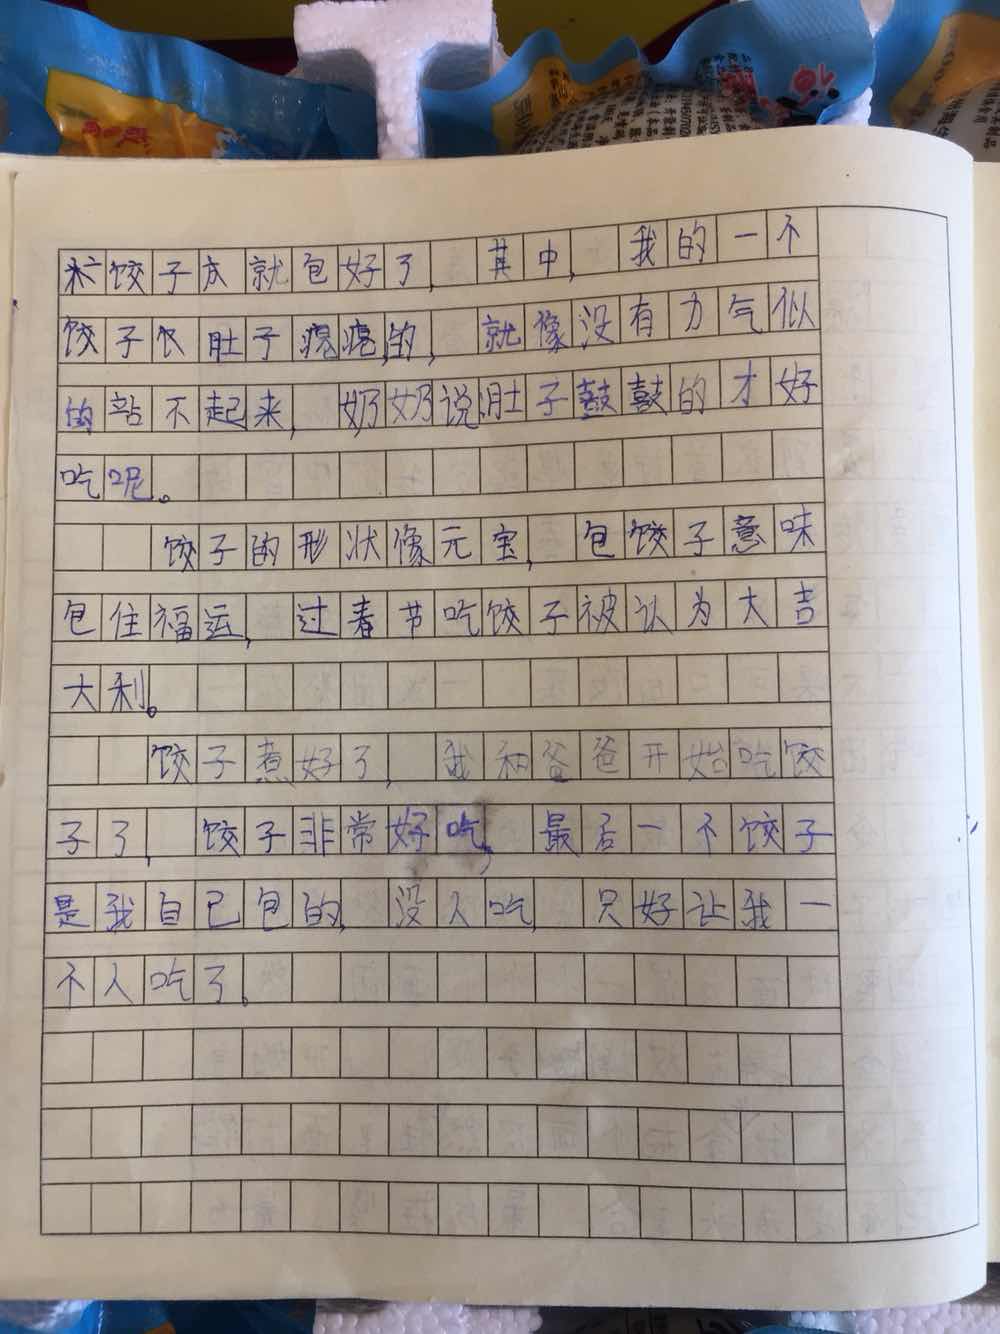 饺子就包好了，其中，我的一个
饺子肚子瘪瘪的，就像没有力气似
的站不起来，奶奶说肚子鼓鼓的才好
吃呢。
饺子的形状像元宝，包饺子意味
包住福运，过春节吃饺子被认为大吉
大利。
饺子煮好了，我和爸爸开始吃饺
子了，饺子非常好吃，最后一个饺子
是我自己包的，没人吃，只好让我一
个人吃了。